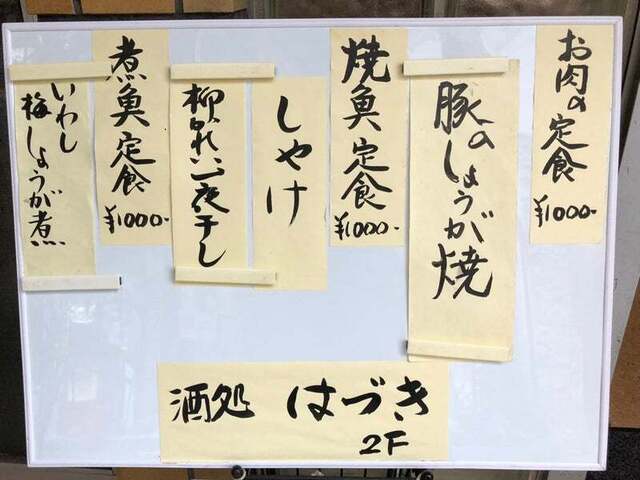 お肉の定食
¥1000-
豚のしょうが焼
焼魚定食
¥1000-
しゃけ
柳かれい一夜干し
煮魚定食
¥1000-
いわし
梅しょうが煮
酒処 はづき
2F